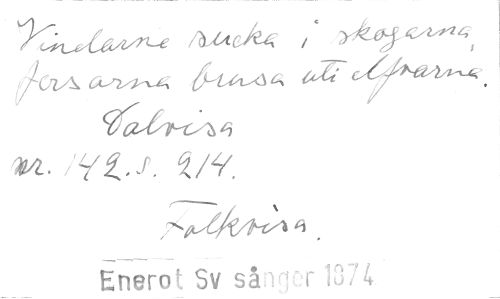 Vindarne sucka i skogarna,
forsarna brusa uti elfvarna.
Dalvisa
nr. 142. s. 214.
Folkvisa.
Enerot Sv sånger 1874